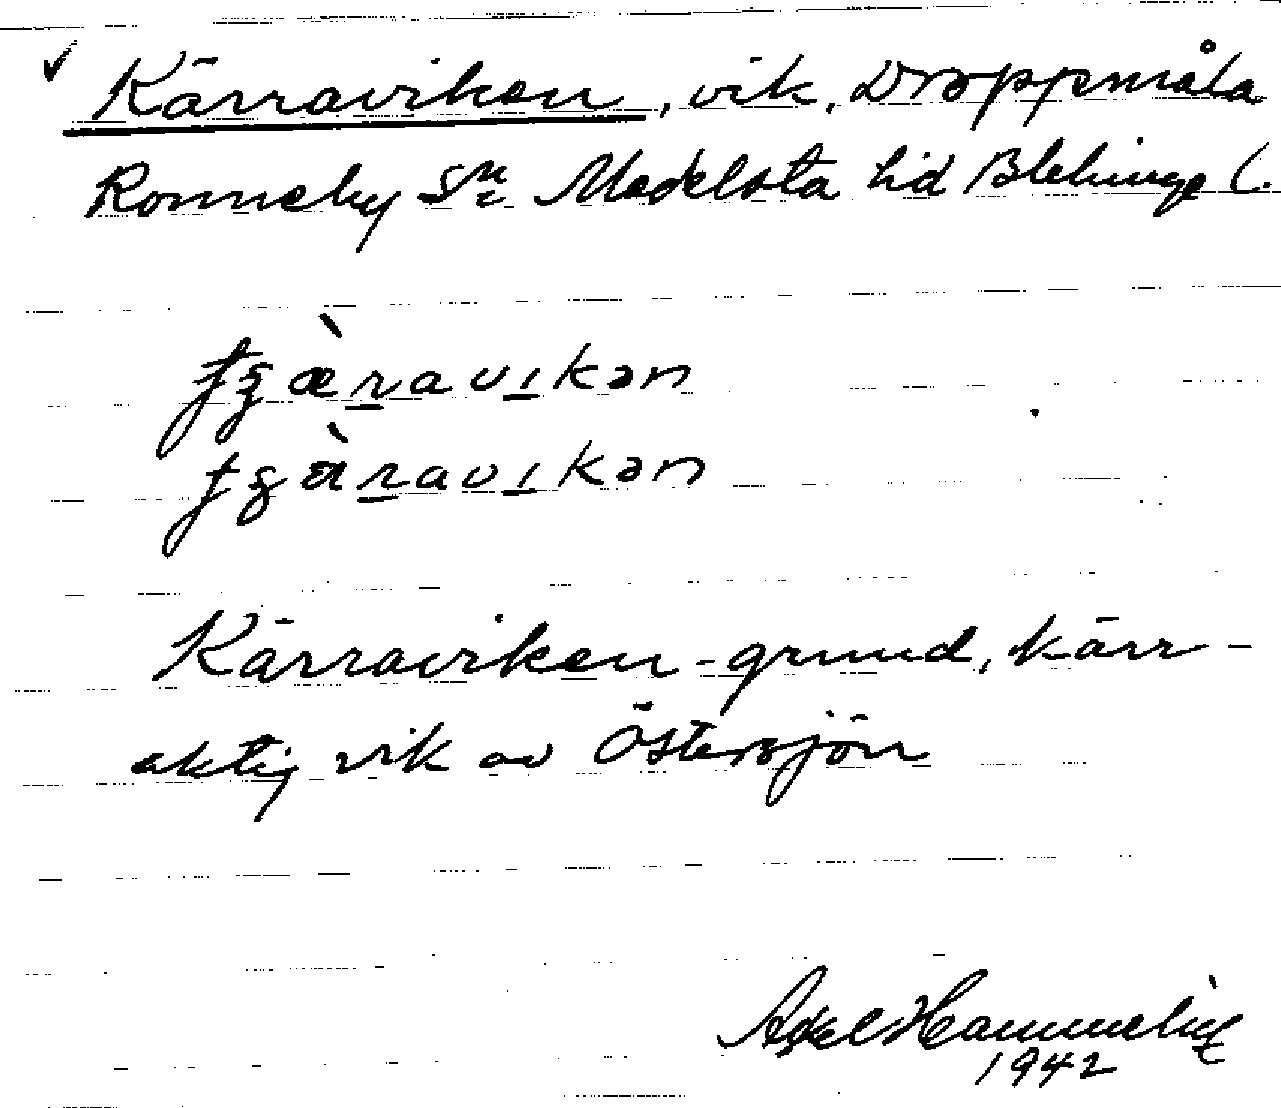 Kärraviken, vik, Droppemåla
Ronneby Sn Medelsta hd Blekinge l.
ʄʒæ̀ravıkən
ʄʒàravıkən
Kärraviken-grund, kärr-
aktig vik av Östersjön
Axel
1942